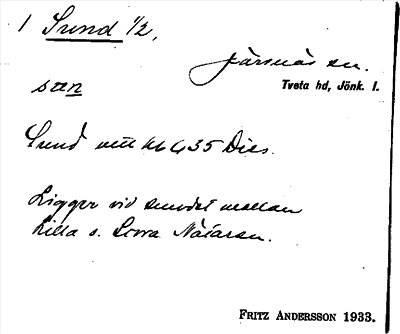 1 Sund ½,
Järsnäs sn.
Tveta hd, Jönk. l.
Sund
Ligger vid sundet mellan
Lilla o. Stora Nätaren.
FRITZ ANDERSSON 1933.